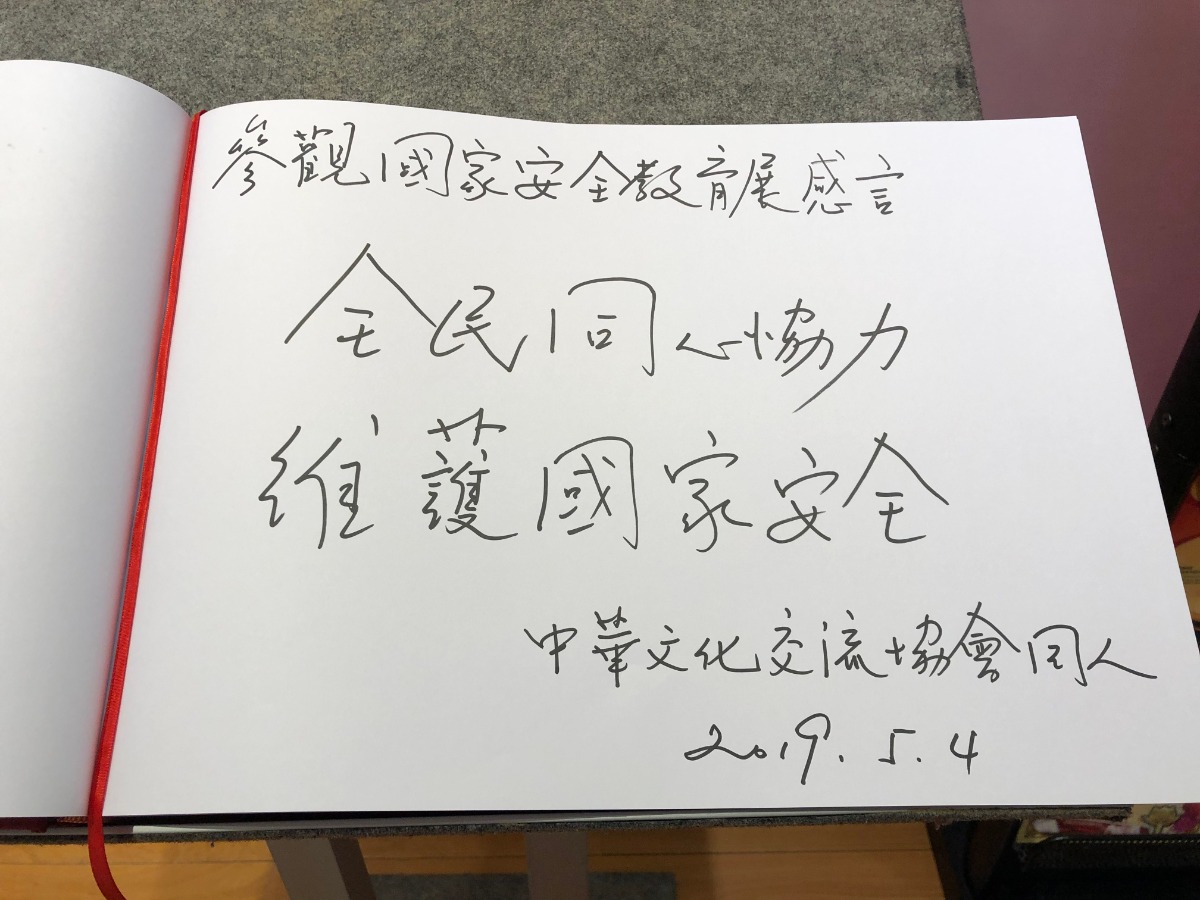 參觀國家安全教育展感言
全民同心協力
維護國家安全
中華文化交流協會同人
2019.5.4